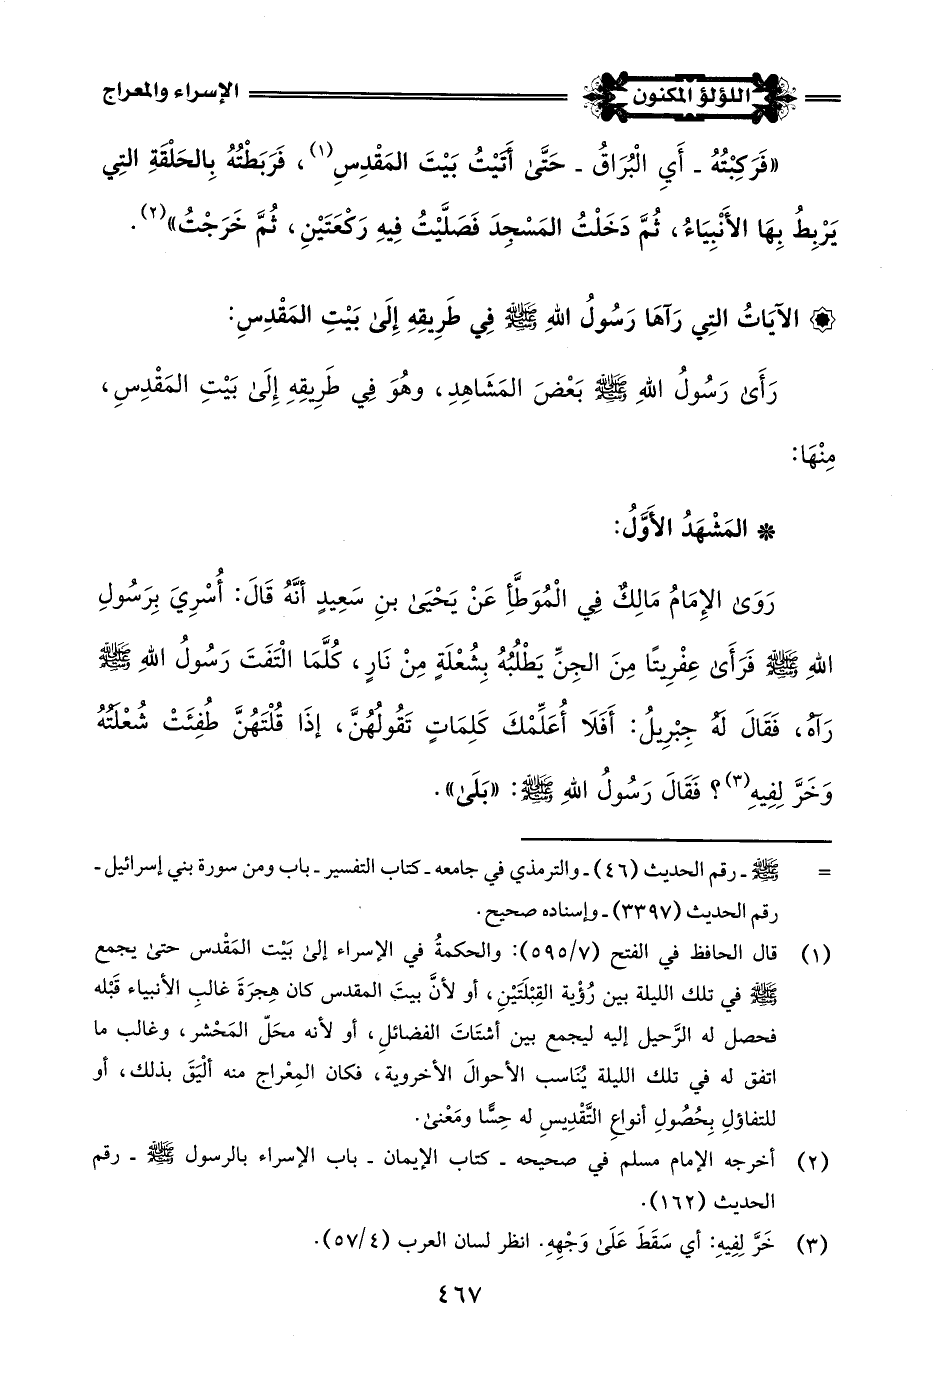 اللؤلؤ المكنون الإسراء والمعراج
«فَرَكِبْتُهُ - أَيِ الْبُرَاقُ - حَتَّىٰ أَتَيْتُ بَيْتَ المَقْدِسِ(١)، فَرَبَطْتُهُ بِالحَلْقَةِ التِي
يَرْبِطُ بِهَا الأَنْبِيَاءُ، ثُمَّ دَخَلْتُ المَسْجِدَ فَصَلَّيْتُ فِيهِ رَكْعَتَيْنِ، ثُمَّ خَرَجْتُ»(٢).
۞ الآيَاتُ التِي رَآهَا رَسُولُ اللهِ ﷺ فِي طَرِيقِهِ إِلَىٰ بَيْتِ المَقْدِسِ:
رَأَىٰ رَسُولُ اللهِ ﷺ بَعْضَ المَشَاهِدِ، وهُوَ فِي طَرِيقِهِ إِلَىٰ بَيْتِ المَقْدِسِ،
مِنْهَا:
* المَشْهَدُ الأَوَّلُ:
رَوَىٰ الإِمَامُ مَالِكٌ فِي الْمُوَطَّأِ عَنْ يَحْيَىٰ بنِ سَعِيدٍ أنَّهُ قَالَ: أُسْرِيَ بِرَسُولِ
اللهِ ﷺ فَرَأَىٰ عِفْرِيتًا مِنَ الجِنِّ يَطْلُبُهُ بِشُعْلَةٍ مِنْ نَارٍ، كُلَّمَا الْتَفَتَ رَسُولُ اللهِ ﷺ
رَآهُ، فَقَالَ لَهُ جِبْرِيلُ: أَفَلَا أُعَلِّمْكَ كَلِمَاتٍ تَقُولُهُنَّ، إِذَا قُلْتَهُنَّ طُفِئَتْ شُعْلَتُهُ
وَخَرَّ لِفِيهِ(٣)؟ فَقَالَ رَسُولُ اللهِ ﷺ: «بَلَىٰ».
= ﷺ - رقم الحديث (٤٦) - والترمذي في جامعه - كتاب التفسير - باب ومن سورة بني إسرائيل -
رقم الحديث (٣٣٩٧) - وإسناده صحيح.
(١) قال الحافظ في الفتح (٥٩٥/٧): والحكمةُ في الإسراء إلىٰ بَيْت المَقْدس حتىٰ يجمع
ﷺ في تلك الليلة بين رُؤْية القِبْلَتَيْنِ، أو لأنَّ بيتَ المقدس كان هِجرَةَ غالبِ الأنبياء قَبْله
فحصل له الرَّحيل إليه ليجمع بين أشتَاتَ الفضائلِ، أو لأنه محَلّ المَحْشر، وغالب ما
اتفق له في تلك الليلة يُنَاسب الأحوالَ الأخروية، فكان المِعْراج منه أليَقَ بذلك، أو
للتفاؤلِ بِحُصُولِ أنواعِ التَّقْديسِ له حِسًّا ومَعْنىٰ.
(٢) أخرجه الإمام مسلم في صحيحه - كتاب الإيمان - باب الإسراء بالرسول ﷺ - رقم
الحديث (١٦٢).
(٣) خَرَّ لِفِيهِ: أي سَقَطَ عَلَىٰ وَجْهِهِ. انظر لسان العرب (٥٧/٤).
٤٦٧